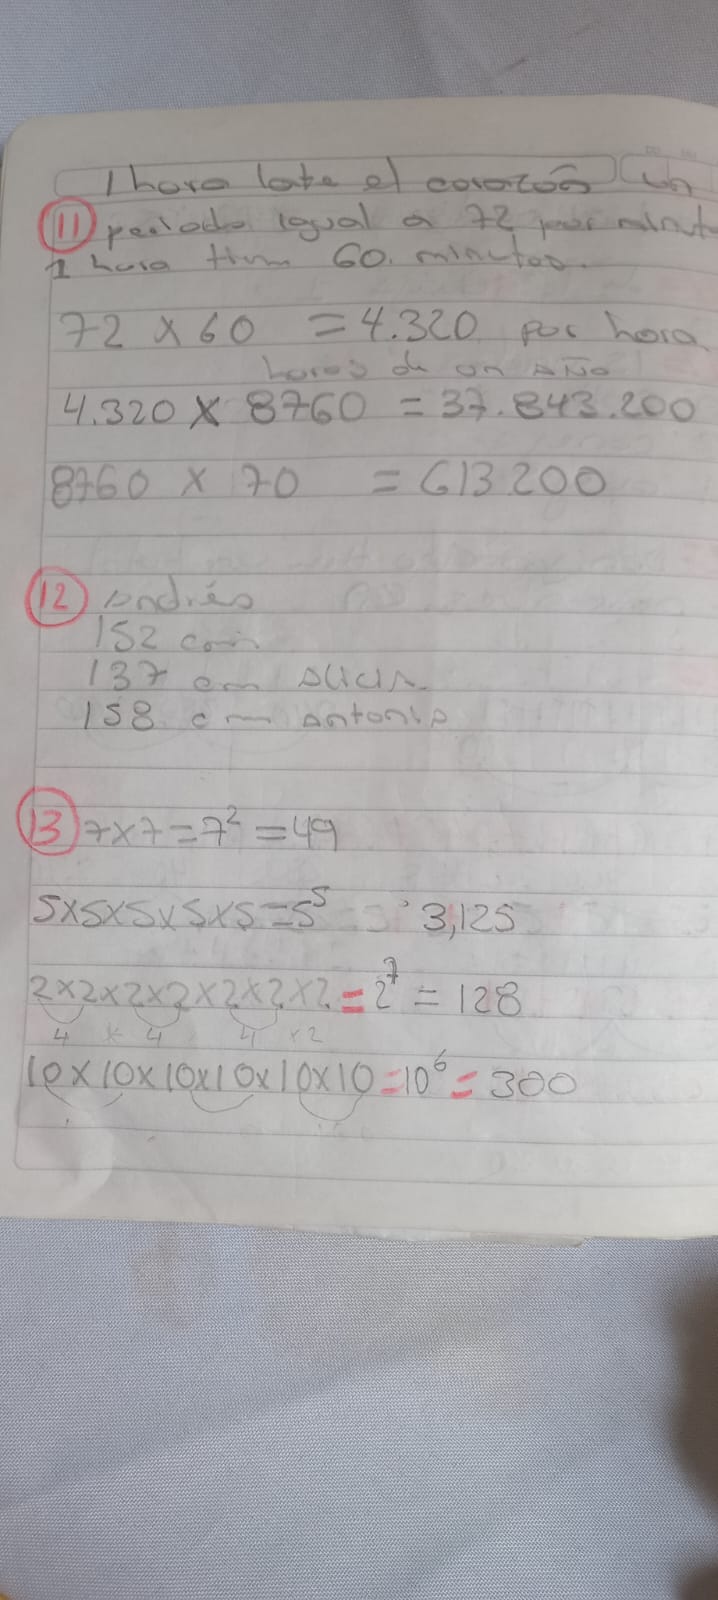 1 hora late el corazón un
11 periodo igual a 72 por minut
1 hora tiene 60. minutos.
72 x 60 = 4.320 por hora
horas de un año
4.320 x 8760 = 37.843.200
8760 x 70 = 613.200
12 Andrés
152 cm
137 cm Alicia
158 cm Antonio
13 7x7=7²=49
5x5x5x5x5=5⁵ 3,125
2x2x2x2x2x2x2=2⁷=128
4 x 4 4 x2
10x10x10x10x10x10=10⁶=300